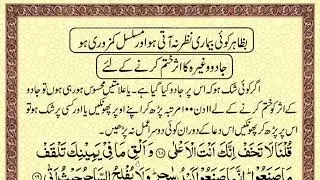 بظاہر کوئی بیماری نظر نہ آتی ہو اور مسلسل کمزوری ہو
جادو وغیرہ کا اثر ختم کرنے کے لئے
اگر کوئی شک ہو کہ اس پر جادو کیا گیا ہے۔ یا علامتیں محسوس ہو رہی ہوں تو جادو
کے اثر کو ختم کرنے کے لئے ااا دن ۱۰۰ مرتبہ پڑھ کر اپنے اوپر پھونکیں یا اور کسی پر شک ہو تو
اس پر پڑھ کر پھونکیں اس دعا کے دوران کوئی دوسرا عمل نہ پڑھیں۔
قُلْنَا لَا تَخَفْ اِنَّكَ اَنْتَ الْاَعْلٰی ﴿۶۸﴾ وَاَلْقِ مَا فِیْ یَمِیْنِكَ تَلْقَفْ
مَا صَنَعُوْا اِنَّمَا صَنَعُوْا كَیْدُ سٰحِرٍ وَلَا یُفْلِحُ السَّاحِرُ حَیْثُ اَتٰی ﴿۶۹﴾